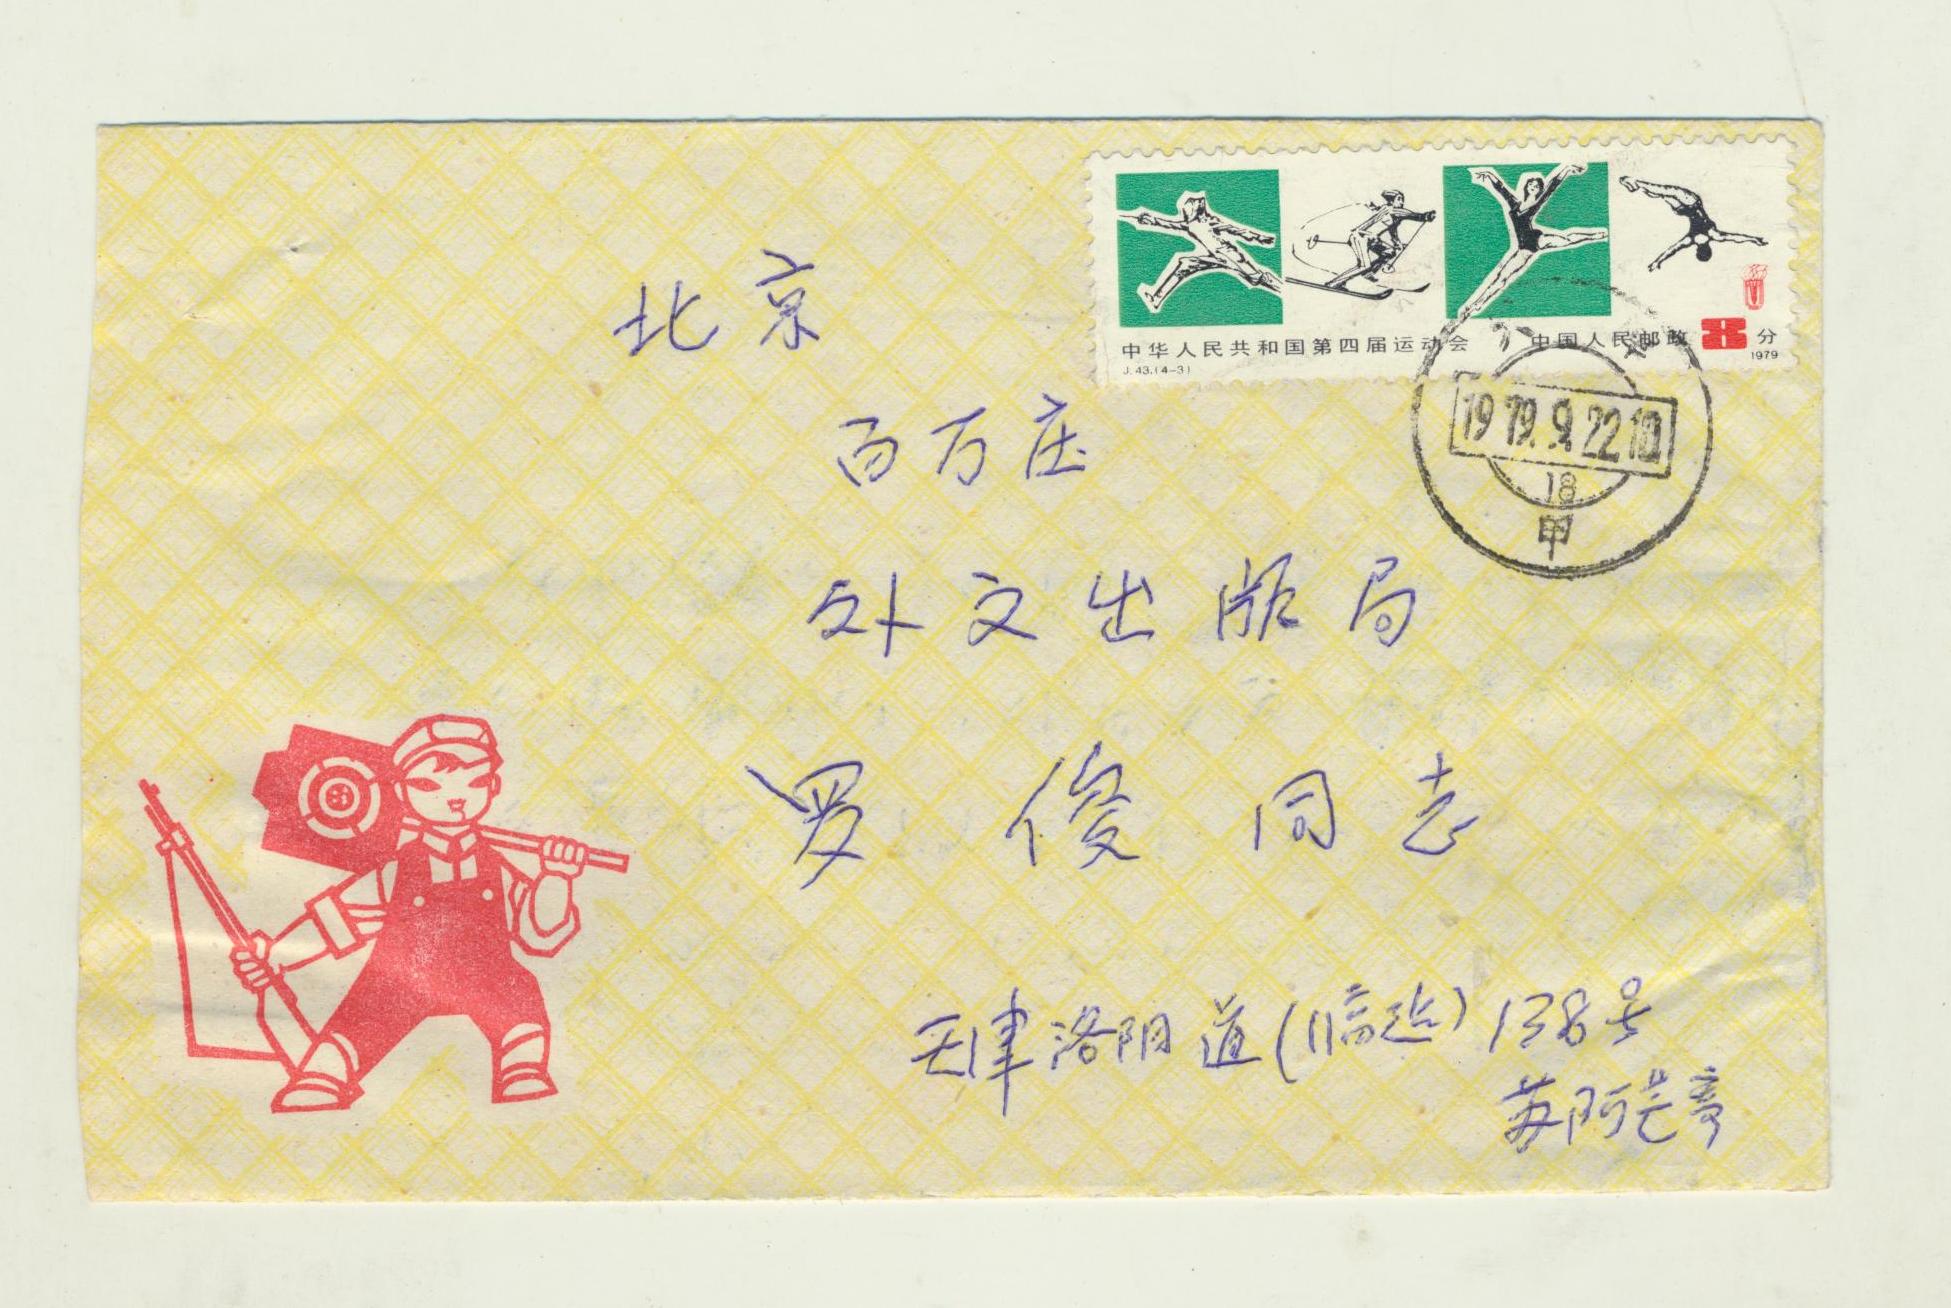 中华人民共和国第四届运动会 中国人民邮政 8 分
J.43.(4-3) 1979
1979.9.22
18
甲
北京
百万庄
外文出版局
罗俊同志
天津洛阳道(临远) 138号
苏阿芒寄